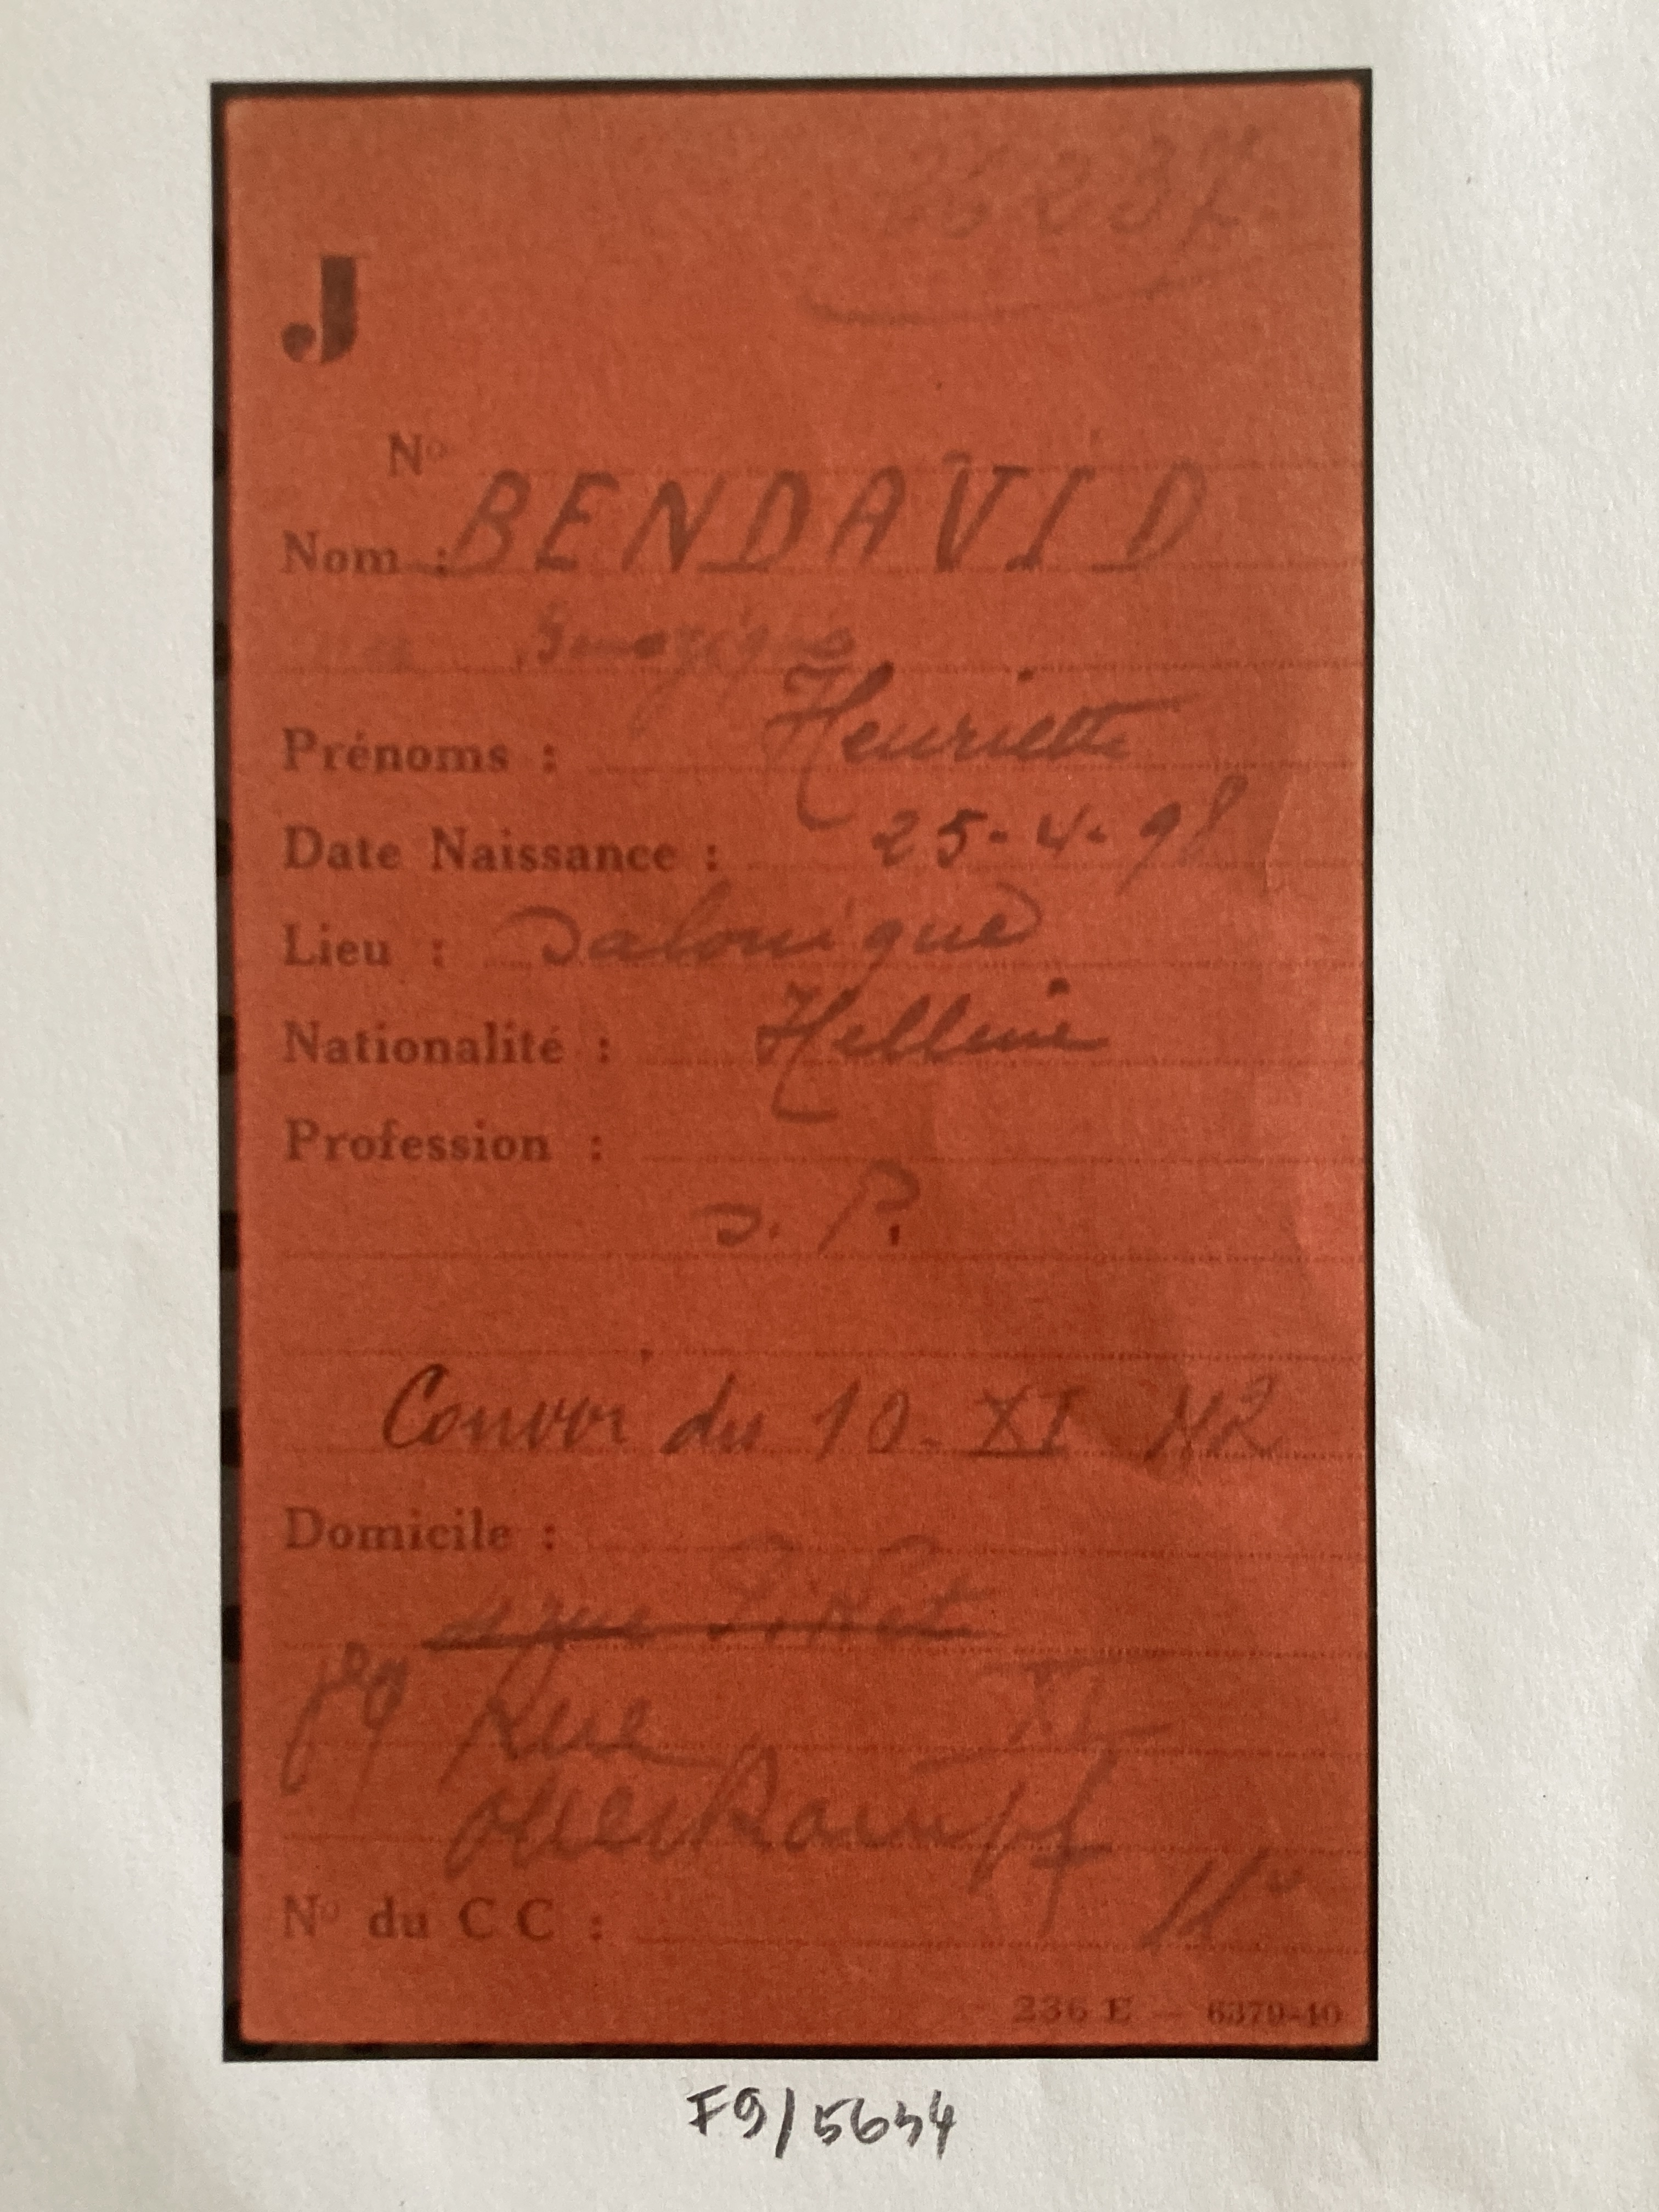 J
Nº
Nom : BENDAVID
Prénoms : Henriette
Date Naissance : 25-4-98
Lieu : Salonique
Nationalité : Hellène
Profession :
S. P.
Convoi du 10-XI 42
Domicile :
Rue XI
Oberkampf
Nº du C C : 11e
236 E — 6379-40
F9/5634